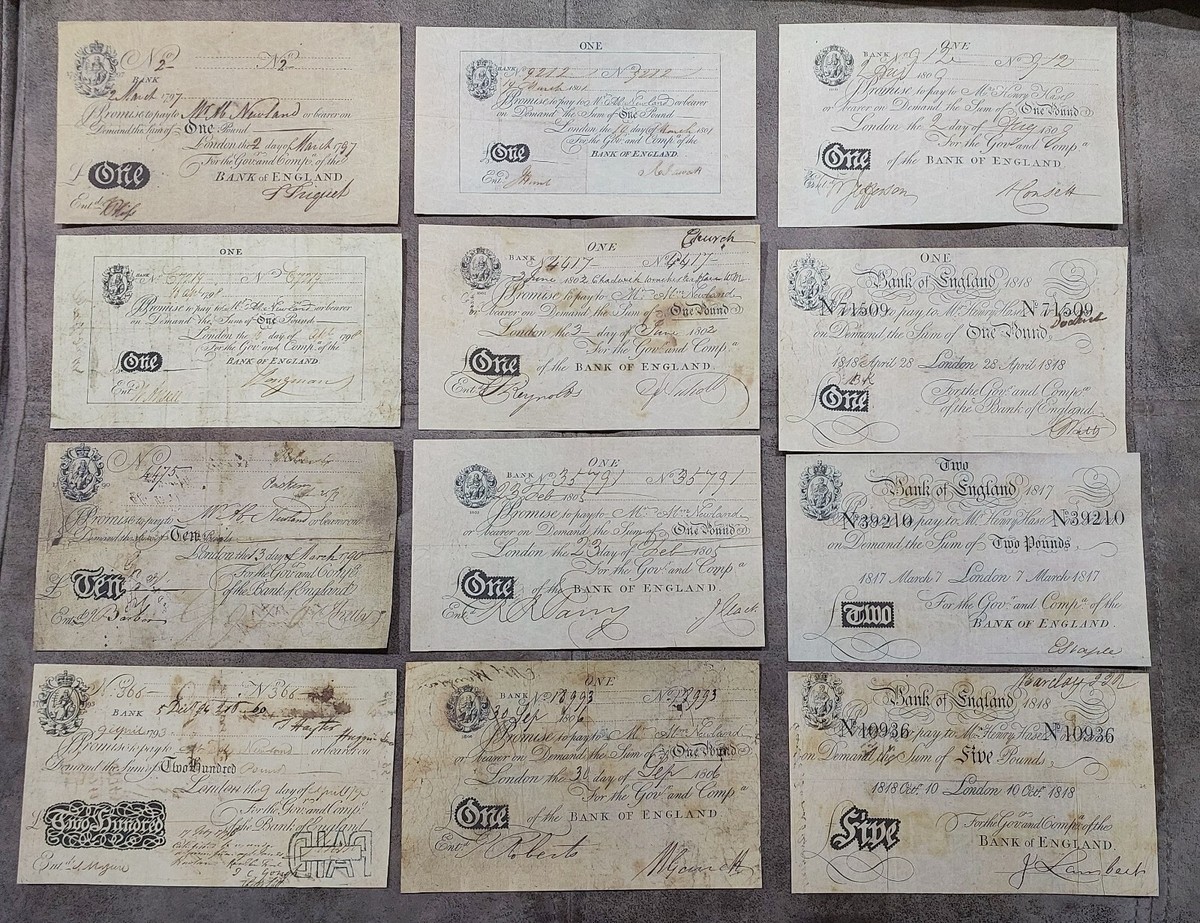 No 2 No 2
BANK
2 March 1797
I Promise to pay to Mr. A. Newland or bearer on
Demand the Sum of One Pound
London the 2 day of March 1797
For the Govr. and Compa. of the
£ One BANK of ENGLAND
Entd.
ONE
BANK No 9212 No 9212
March 1801
I Promise to pay to Mr. A. Newland or bearer
on Demand the Sum of One Pound
London the day of March 1801
For the Govr. and Compa. of the
£ One BANK OF ENGLAND.
Entd.
ONE
BANK No 912 No 912
1809
I Promise to pay to Mr. Henry Hase
or bearer on Demand the Sum of One Pound
London the 2 day of 1809
For the Govr. and Compa.
£ One of the BANK OF ENGLAND.
Entd. Jefferson A Consett
ONE
BANK No No
1798
I Promise to pay to Mr. A. Newland, or bearer
on Demand the Sum of One Pound
London the day of 1798
For the Govr. and Compa. of the
£ One BANK OF ENGLAND.
Entd. Longman
Church
ONE
BANK No 4417 No 4417
3 June 1802 Chadwick
I Promise to pay to Mr. A. Newland
or bearer on Demand the Sum of One Pound
London the 3 day of June 1802
For the Govr. and Compa.
£ One of the BANK OF ENGLAND.
Entd. Reynolds
ONE
Bank of England 1818
No 71509 I Promise to pay to Mr. Henry Hase No 71509
on Demand the Sum of One Pound
1818 April 28 London 28 April 1818
For the Govr. and Compa.
£ One of the Bank of England.
No 4475
I Promise to pay to Mr. A. Newland or bearer on
Demand the Sum of Ten Pounds
London the 13 day of March 1790
For the Govr. and Compa.
£ Ten of the Bank of England
Entd. Barber
ONE
BANK No 35791 No 35791
23 Feb 1805
I Promise to pay to Mr. A. Newland
or bearer on Demand the Sum of One Pound
London the 23 day of Feb 1805
For the Govr. and Compa.
£ One of the BANK OF ENGLAND.
Entd.
Two
Bank of England 1817
No 39210 I Promise to pay to Mr. Henry Hase No 39210
on Demand the Sum of Two Pounds,
1817 March 7 London 7 March 1817
For the Govr. and Compa. of the
£ Two BANK OF ENGLAND.
No 366 No 366
BANK
9 April 1793 Hayter
I Promise to pay to Newland or bearer on
Demand the Sum of Two Hundred Pounds
London the 9 day of April
For the Govr. and Compa.
£ Two Hundred of the Bank of England
Entd.
ONE
BANK No 18993 No 18993
30 Sep 1806
I Promise to pay to Mr. A. Newland
or bearer on Demand the Sum of One Pound
London the 30 day of Sep 1806
For the Govr. and Compa.
£ One of the BANK OF ENGLAND
Entd. Roberts
Barclay
Bank of England 1818
No 10936 I Promise to pay to Mr. Henry Hase No 10936
on Demand the Sum of Five Pounds,
1818 Oct. 10 London 10 Oct. 1818
For the Govr. and Compa. of the
£ Five BANK OF ENGLAND.
J Lambert